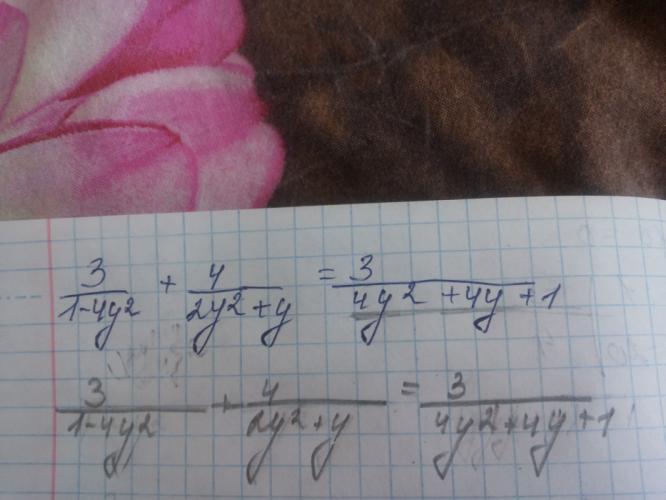 3/(1-4y²) + 4/(2y²+y) = 3/(4y²+4y+1)
3/(1-4y²) + 4/(2y²+y) = 3/(4y²+4y+1)